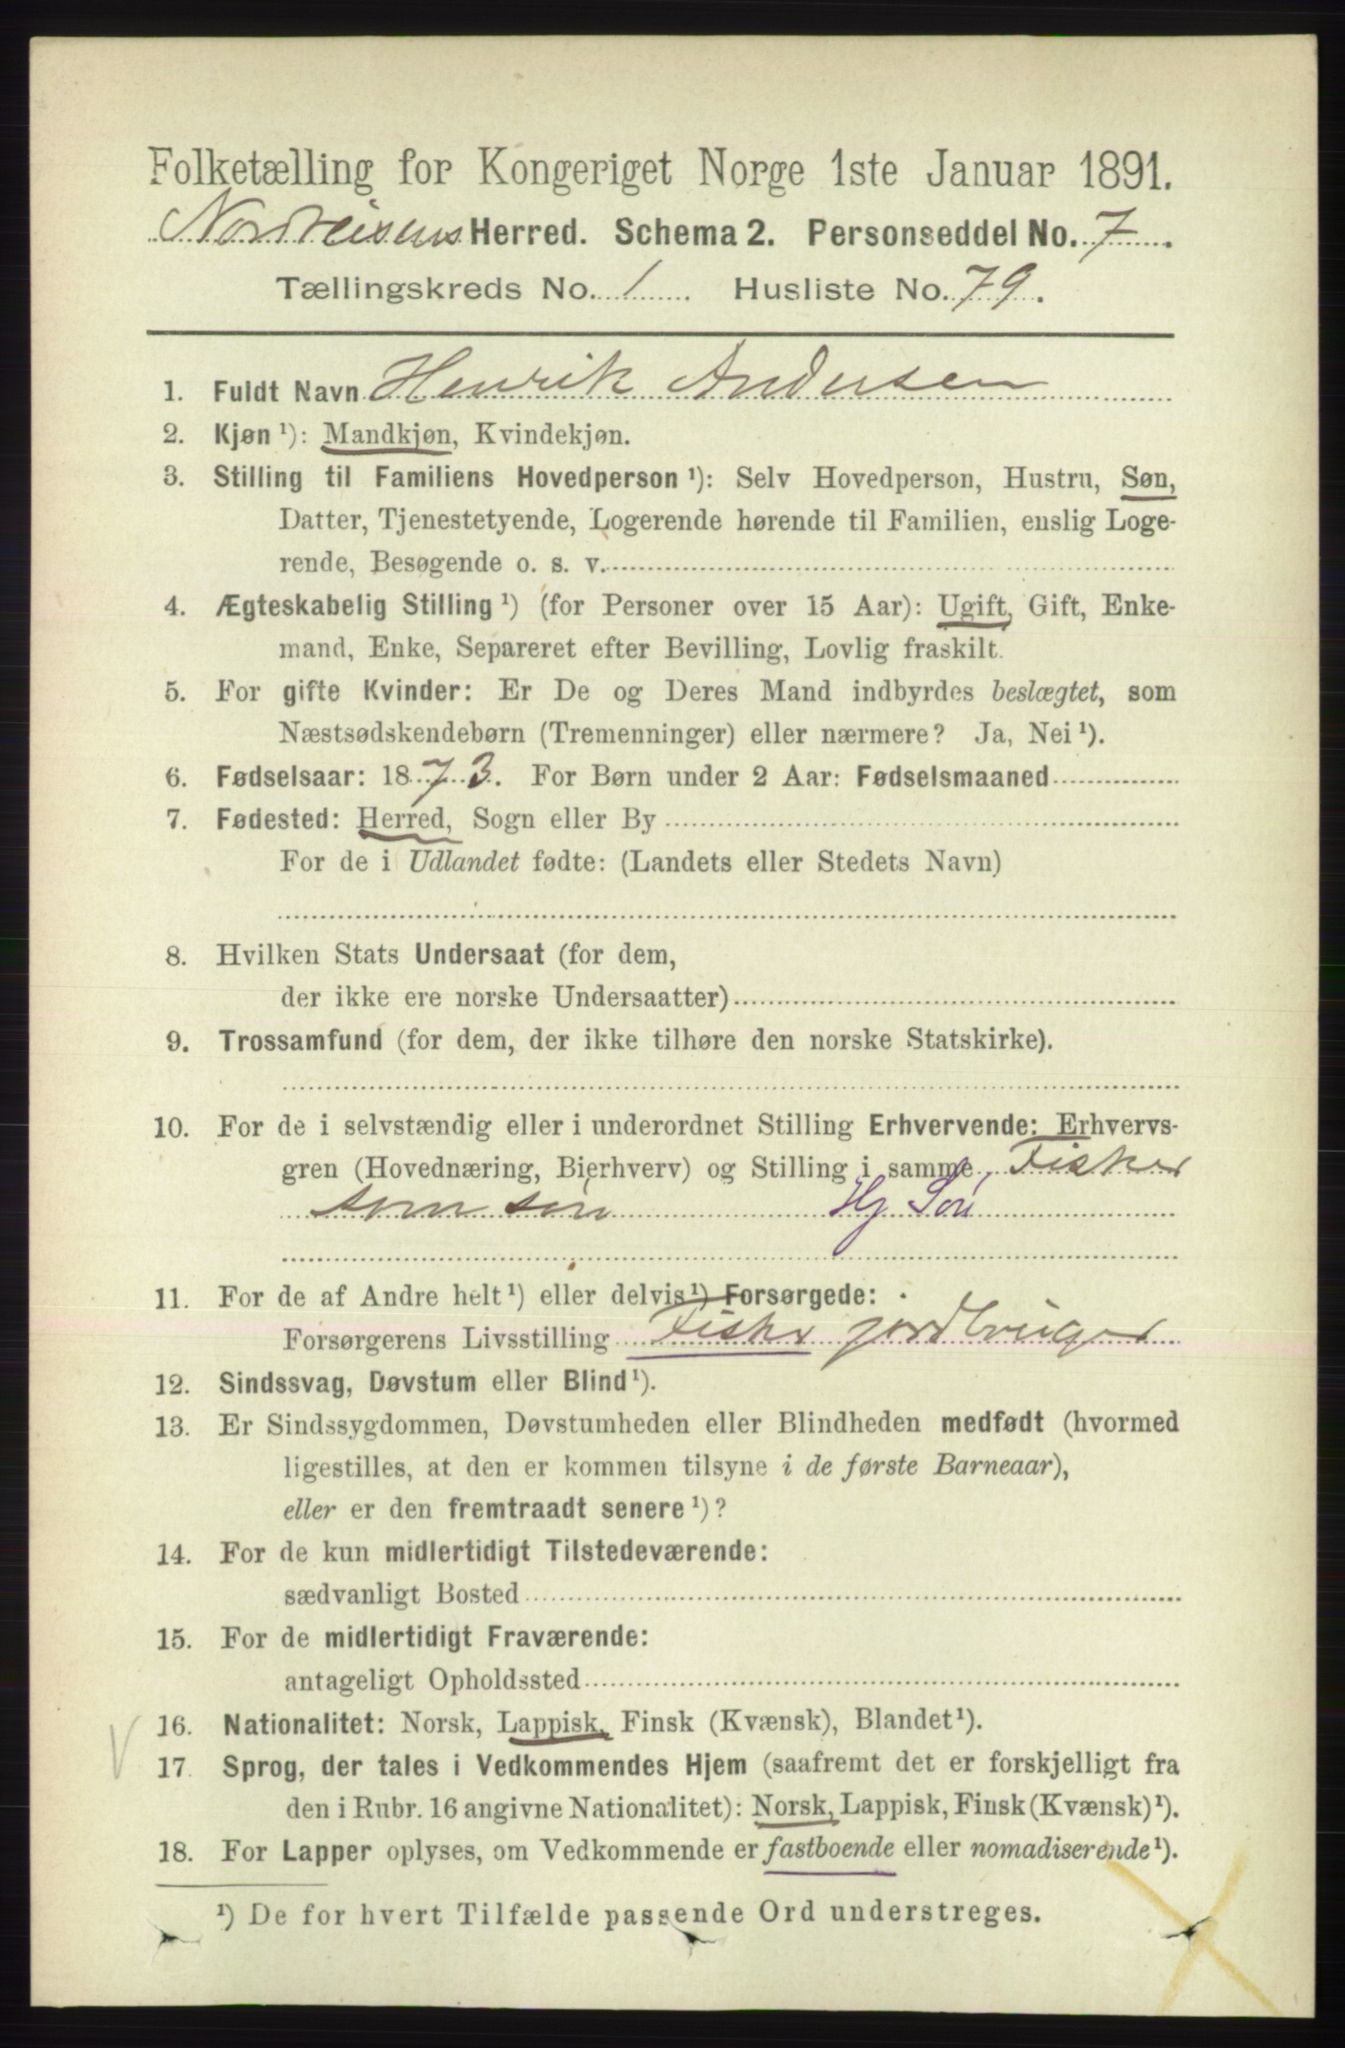 Folketælling for Kongeriget Norge 1ste Januar 1891.
Nordreisens Herred. Schema 2. Personseddel No. 7.
Tællingskreds No. 1 Husliste No. 79.
1. Fuldt Navn Henrik Andersen
2. Kjøn ¹): Mandkjøn, Kvindekjøn.
3. Stilling til Familiens Hovedperson ¹): Selv Hovedperson, Hustru, Søn,
Datter, Tjenestetyende, Logerende hørende til Familien, enslig Loge-
rende, Besøgende o. s. v.
4. Ægteskabelig Stilling ¹) (for Personer over 15 Aar): Ugift, Gift, Enke-
mand, Enke, Separeret efter Bevilling, Lovlig fraskilt.
5. For gifte Kvinder: Er De og Deres Mand indbyrdes beslægtet, som
Næstsødskendebørn (Tremenninger) eller nærmere? Ja, Nei ¹).
6. Fødselsaar: 1873. For Børn under 2 Aar: Fødselsmaaned
7. Fødested: Herred, Sogn eller By
For de i Udlandet fødte: (Landets eller Stedets Navn)
8. Hvilken Stats Undersaat (for dem,
der ikke ere norske Undersaatter)
9. Trossamfund (for dem, der ikke tilhøre den norske Statskirke).
10. For de i selvstændig eller i underordnet Stilling Erhvervende: Erhvervs-
gren (Hovednæring, Bierhverv) og Stilling i samme Fisker
som søn Hj Søn
11. For de af Andre helt ¹) eller delvis ¹) Forsørgede:
Forsørgerens Livsstilling Fisker jordbruger
12. Sindssvag, Døvstum eller Blind ¹).
13. Er Sindssygdommen, Døvstumheden eller Blindheden medfødt (hvormed
ligestilles, at den er kommen tilsyne i de første Barneaar),
eller er den fremtraadt senere ¹)?
14. For de kun midlertidigt Tilstedeværende:
sædvanligt Bosted
15. For de midlertidigt Fraværende:
antageligt Opholdssted
16. Nationalitet: Norsk, Lappisk, Finsk (Kvænsk), Blandet ¹).
17. Sprog, der tales i Vedkommendes Hjem (saafremt det er forskjelligt fra
den i Rubr. 16 angivne Nationalitet): Norsk, Lappisk, Finsk (Kvænsk) ¹).
18. For Lapper oplyses, om Vedkommende er fastboende eller nomadiserende ¹).
¹) De for hvert Tilfælde passende Ord understreges.